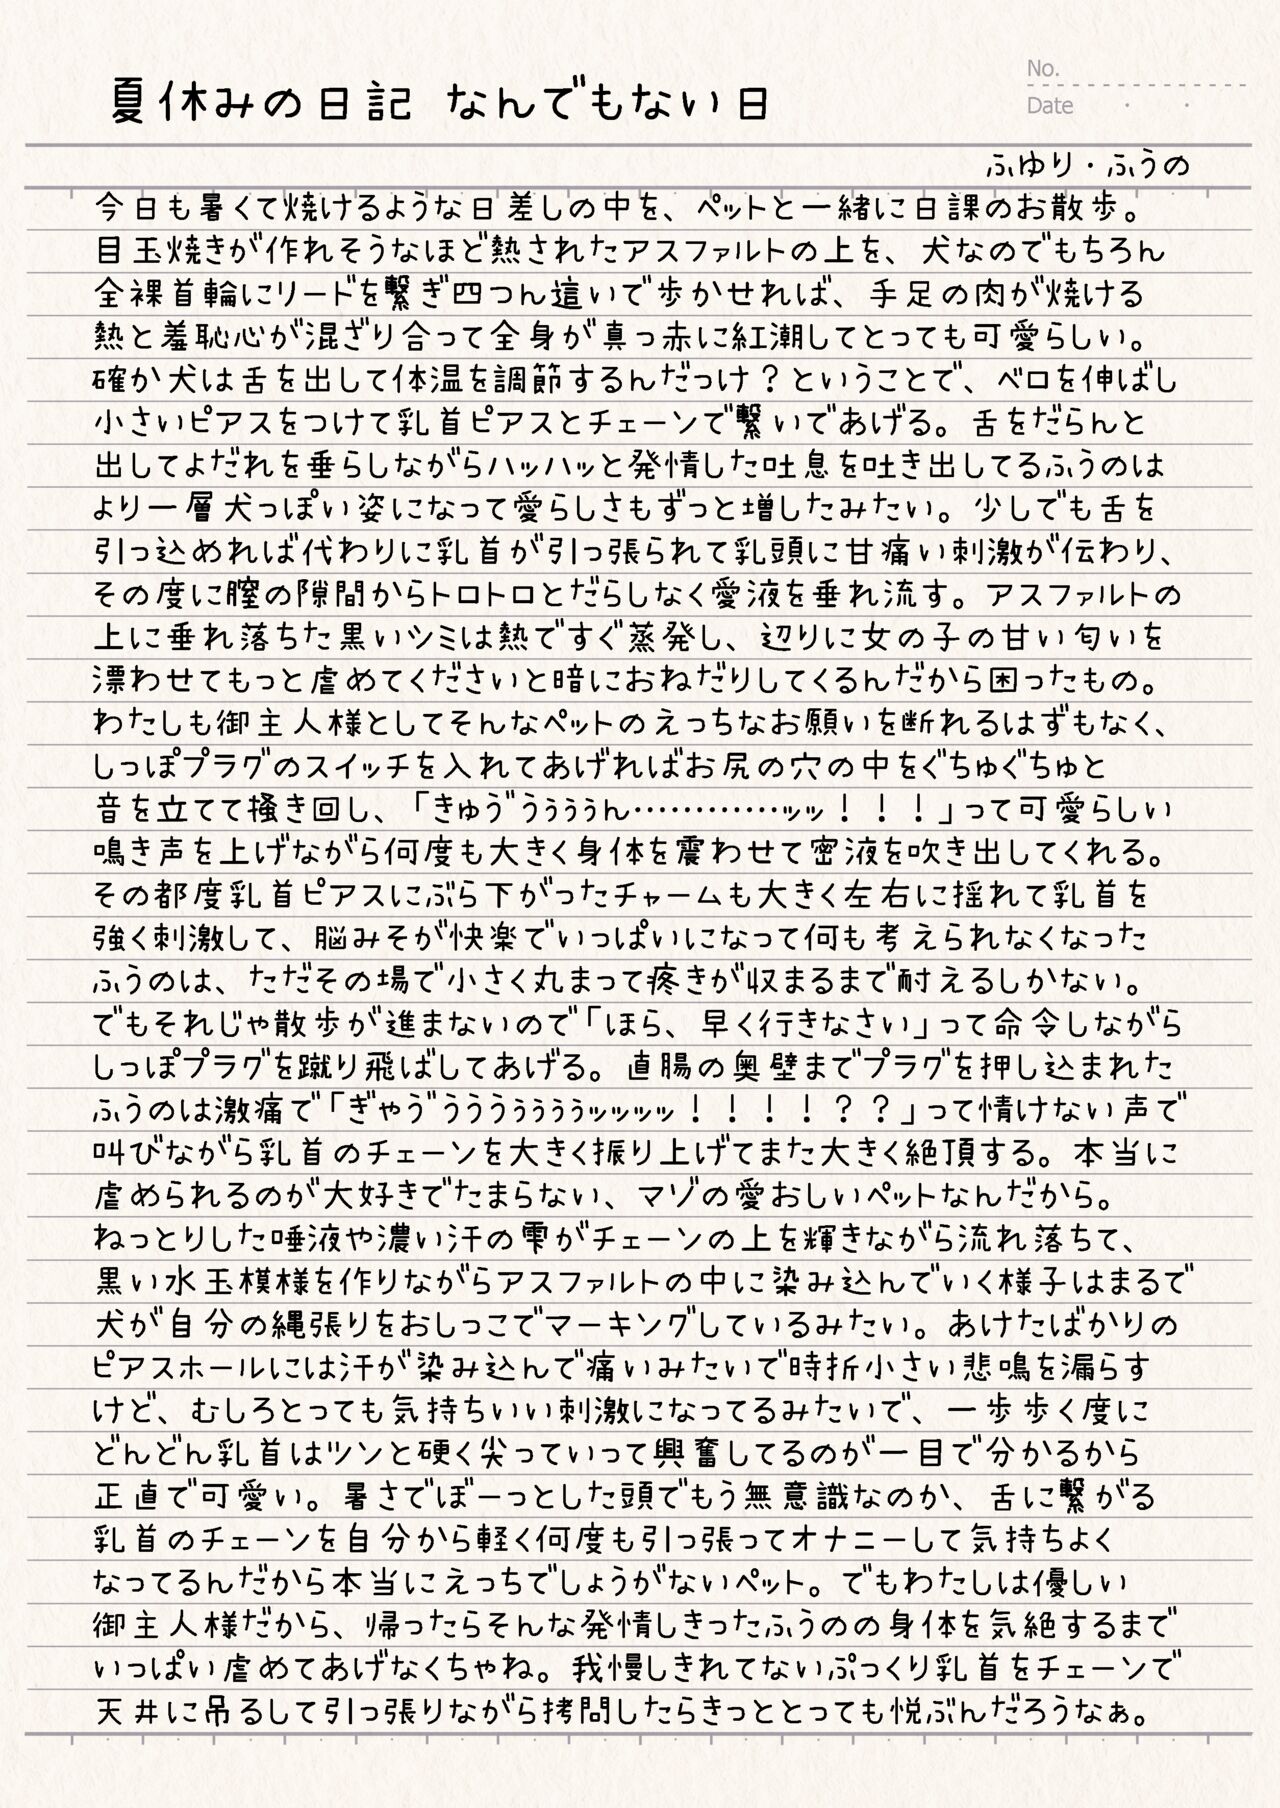 No.
夏休みの日記 なんでもない日
Date ・ ・
ふゆり・ふうの
今日も暑くて焼けるような日差しの中を、ペットと一緒に日課のお散歩。
目玉焼きが作れそうなほど熱されたアスファルトの上を、犬なのでもちろん
全裸首輪にリードを繋ぎ四つん這いで歩かせれば、手足の肉が焼ける
熱と羞恥心が混ざり合って全身が真っ赤に紅潮してとっても可愛らしい。
確か犬は舌を出して体温を調節するんだっけ？ということで、ベロを伸ばし
小さいピアスをつけて乳首ピアスとチェーンで繋いであげる。舌をだらんと
出してよだれを垂らしながらハッハッと発情した吐息を吐き出してるふうのは
より一層犬っぽい姿になって愛らしさもずっと増したみたい。少しでも舌を
引っ込めれば代わりに乳首が引っ張られて乳頭に甘痛い刺激が伝わり、
その度に膣の隙間からトロトロとだらしなく愛液を垂れ流す。アスファルトの
上に垂れ落ちた黒いシミは熱ですぐ蒸発し、辺りに女の子の甘い匂いを
漂わせてもっと虐めてくださいと暗におねだりしてくるんだから困ったもの。
わたしも御主人様としてそんなペットのえっちなお願いを断れるはずもなく、
しっぽプラグのスイッチを入れてあげればお尻の穴の中をぐちゅぐちゅと
音を立てて掻き回し、「きゅゔうぅぅぅん…………ッッ！！！」って可愛らしい
鳴き声を上げながら何度も大きく身体を震わせて密液を吹き出してくれる。
その都度乳首ピアスにぶら下がったチャームも大きく左右に揺れて乳首を
強く刺激して、脳みそが快楽でいっぱいになって何も考えられなくなった
ふうのは、ただその場で小さく丸まって疼きが収まるまで耐えるしかない。
でもそれじゃ散歩が進まないので「ほら、早く行きなさい」って命令しながら
しっぽプラグを蹴り飛ばしてあげる。直腸の奥壁までプラグを押し込まれた
ふうのは激痛で「ぎゃゔうううぅぅぅぅッッッッ！！！！？？」って情けない声で
叫びながら乳首のチェーンを大きく振り上げてまた大きく絶頂する。本当に
虐められるのが大好きでたまらない、マゾの愛おしいペットなんだから。
ねっとりした唾液や濃い汗の雫がチェーンの上を輝きながら流れ落ちて、
黒い水玉模様を作りながらアスファルトの中に染み込んでいく様子はまるで
犬が自分の縄張りをおしっこでマーキングしているみたい。あけたばかりの
ピアスホールには汗が染み込んで痛いみたいで時折小さい悲鳴を漏らす
けど、むしろとっても気持ちいい刺激になってるみたいで、一歩歩く度に
どんどん乳首はツンと硬く尖っていって興奮してるのが一目で分かるから
正直で可愛い。暑さでぼーっとした頭でもう無意識なのか、舌に繋がる
乳首のチェーンを自分から軽く何度も引っ張ってオナニーして気持ちよく
なってるんだから本当にえっちでしょうがないペット。でもわたしは優しい
御主人様だから、帰ったらそんな発情しきったふうのの身体を気絶するまで
いっぱい虐めてあげなくちゃね。我慢しきれてないぷっくり乳首をチェーンで
天井に吊るして引っ張りながら拷問したらきっととっても悦ぶんだろうなぁ。